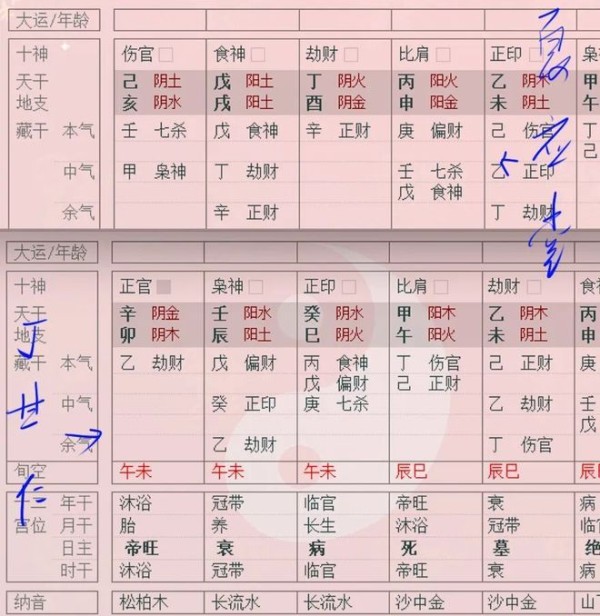 大运/年龄
十神 伤官 食神 劫财 比肩 正印 枭
天干 己 阴土 戊 阳土 丁 阴火 丙 阳火 乙 阴木 甲
地支 亥 阴水 戌 阳土 酉 阴金 申 阳金 未 阴土 午
藏干 本气 壬 七杀 戊 食神 辛 正财 庚 偏财 己 伤官 丁
己
中气 甲 枭神 丁 劫财 壬 七杀 乙 正印
戊 食神
余气 辛 正财 丁 劫财
大运/年龄
十神 正官 枭神 正印 比肩 劫财 食神
天干 辛 阴金 壬 阳水 癸 阴水 甲 阳木 乙 阴木 丙
地支 卯 阴木 辰 阳土 巳 阴火 午 阳火 未 阴土 申
藏干 本气 乙 劫财 戊 偏财 丙 食神 丁 伤官 己 正财 庚
戊 偏财 己 正财
中气 癸 正印 庚 七杀 乙 劫财 壬
戊
余气 乙 劫财 丁 伤官
旬空 午未 午未 午未 辰巳 辰巳 辰
十二 年干 沐浴 冠带 临官 帝旺 衰 病
宫位 月干 胎 养 长生 沐浴 冠带 临
日主 帝旺 衰 病 死 墓 绝
时干 沐浴 冠带 临官 帝旺 衰 病
纳音 松柏木 长流水 长流水 沙中金 沙中金 山